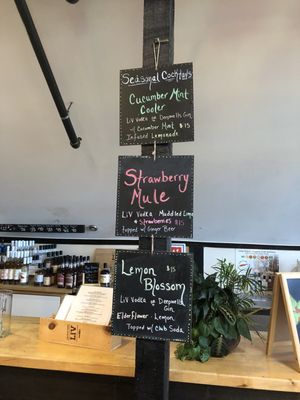 Seasonal Cocktails
Cucumber Mint
Cooler
LiV Vodka or Deepwells Gin
w/ Cucumber Mint $15
Infused Lemonade
Strawberry
Mule
LiV Vodka Muddled Lime
& Strawberries $15
topped w/ Ginger Beer
Lemon $15
Blossom
LiV Vodka or Deepwells
Gin
Elderflower · Lemon
Topped w/ Club Soda
LIV